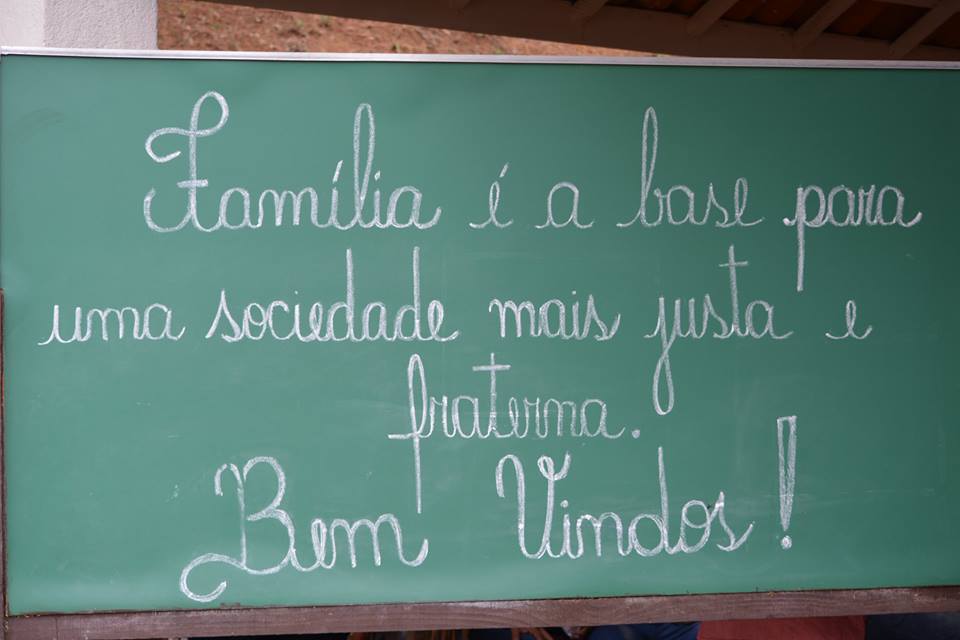 Família é a base para
uma sociedade mais justa e
fraterna.
Bem Vindos!